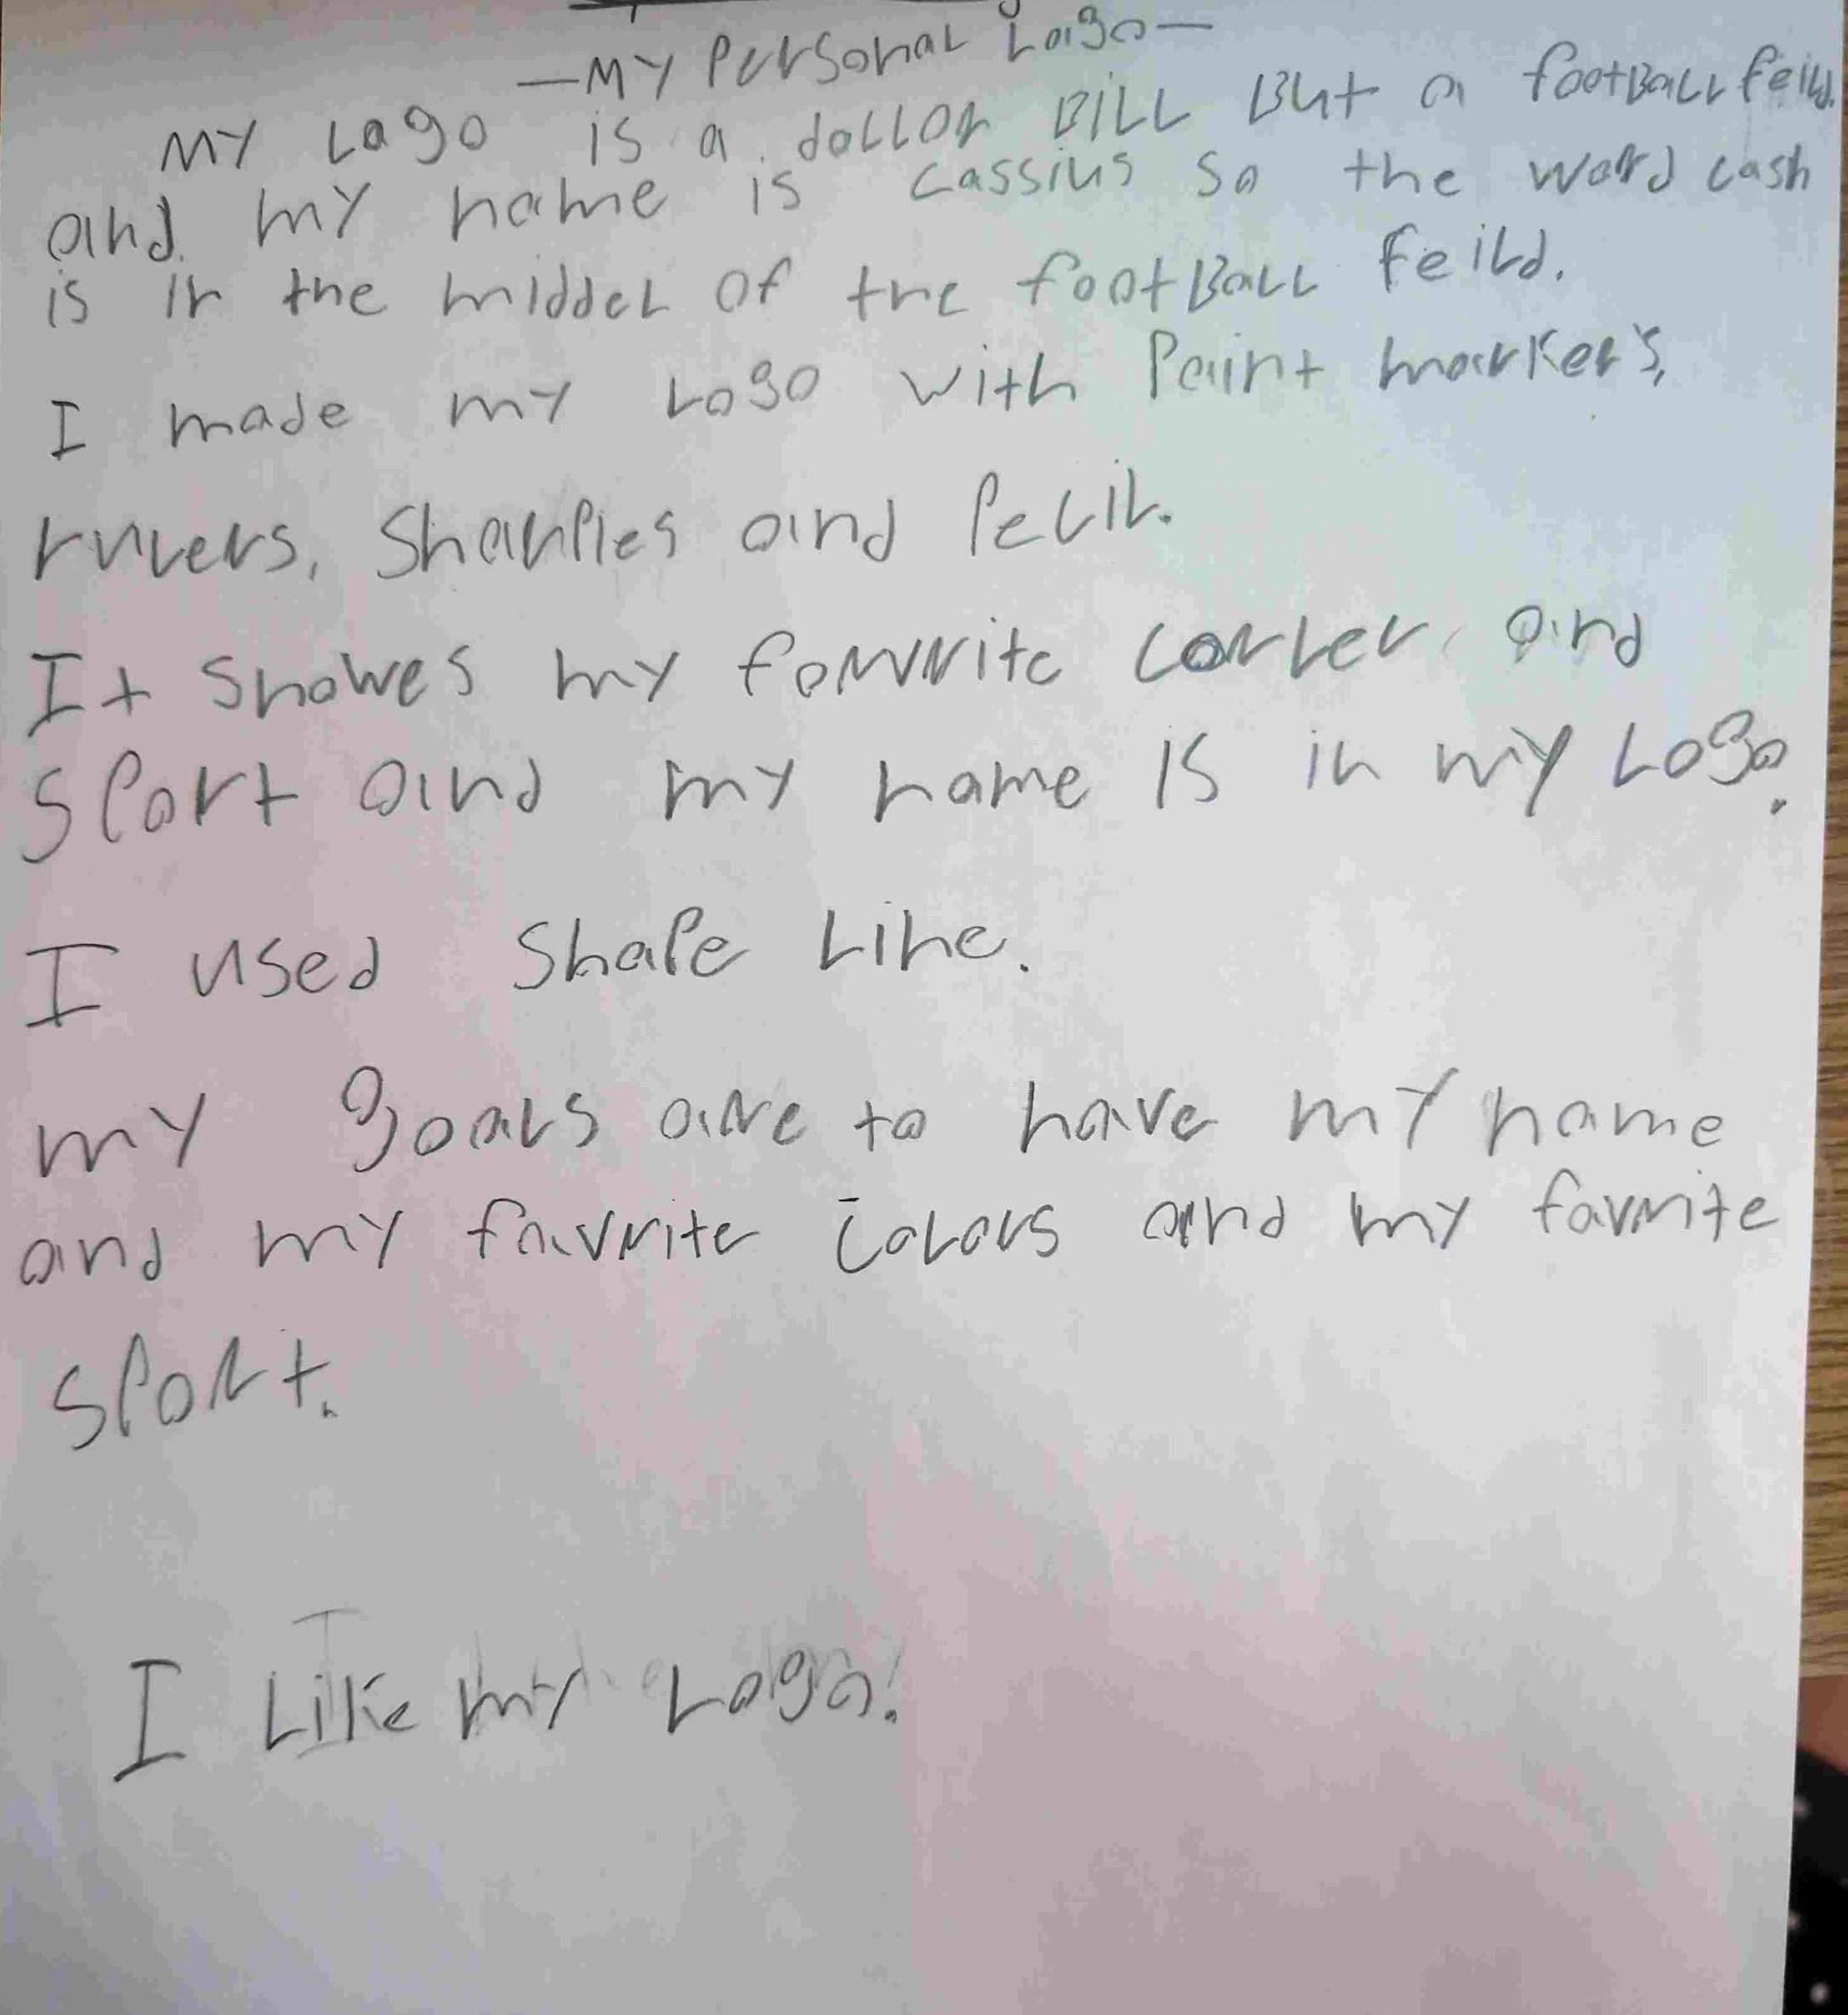 —My Personal Logo—
My Logo is a dollor Bill But a footBall feild.
and my name is cassius so the word cash
is in the middel of the footBall feild.
I made my Logo with Paint marker's,
rulers, Sharpies and Pecil.
It showes my forvrite corler and
sport and my name is in my Logo.
I used shape Line.
my goals are to have my name
and my favrite colors and my favrite
sport.
I Like my Logo!